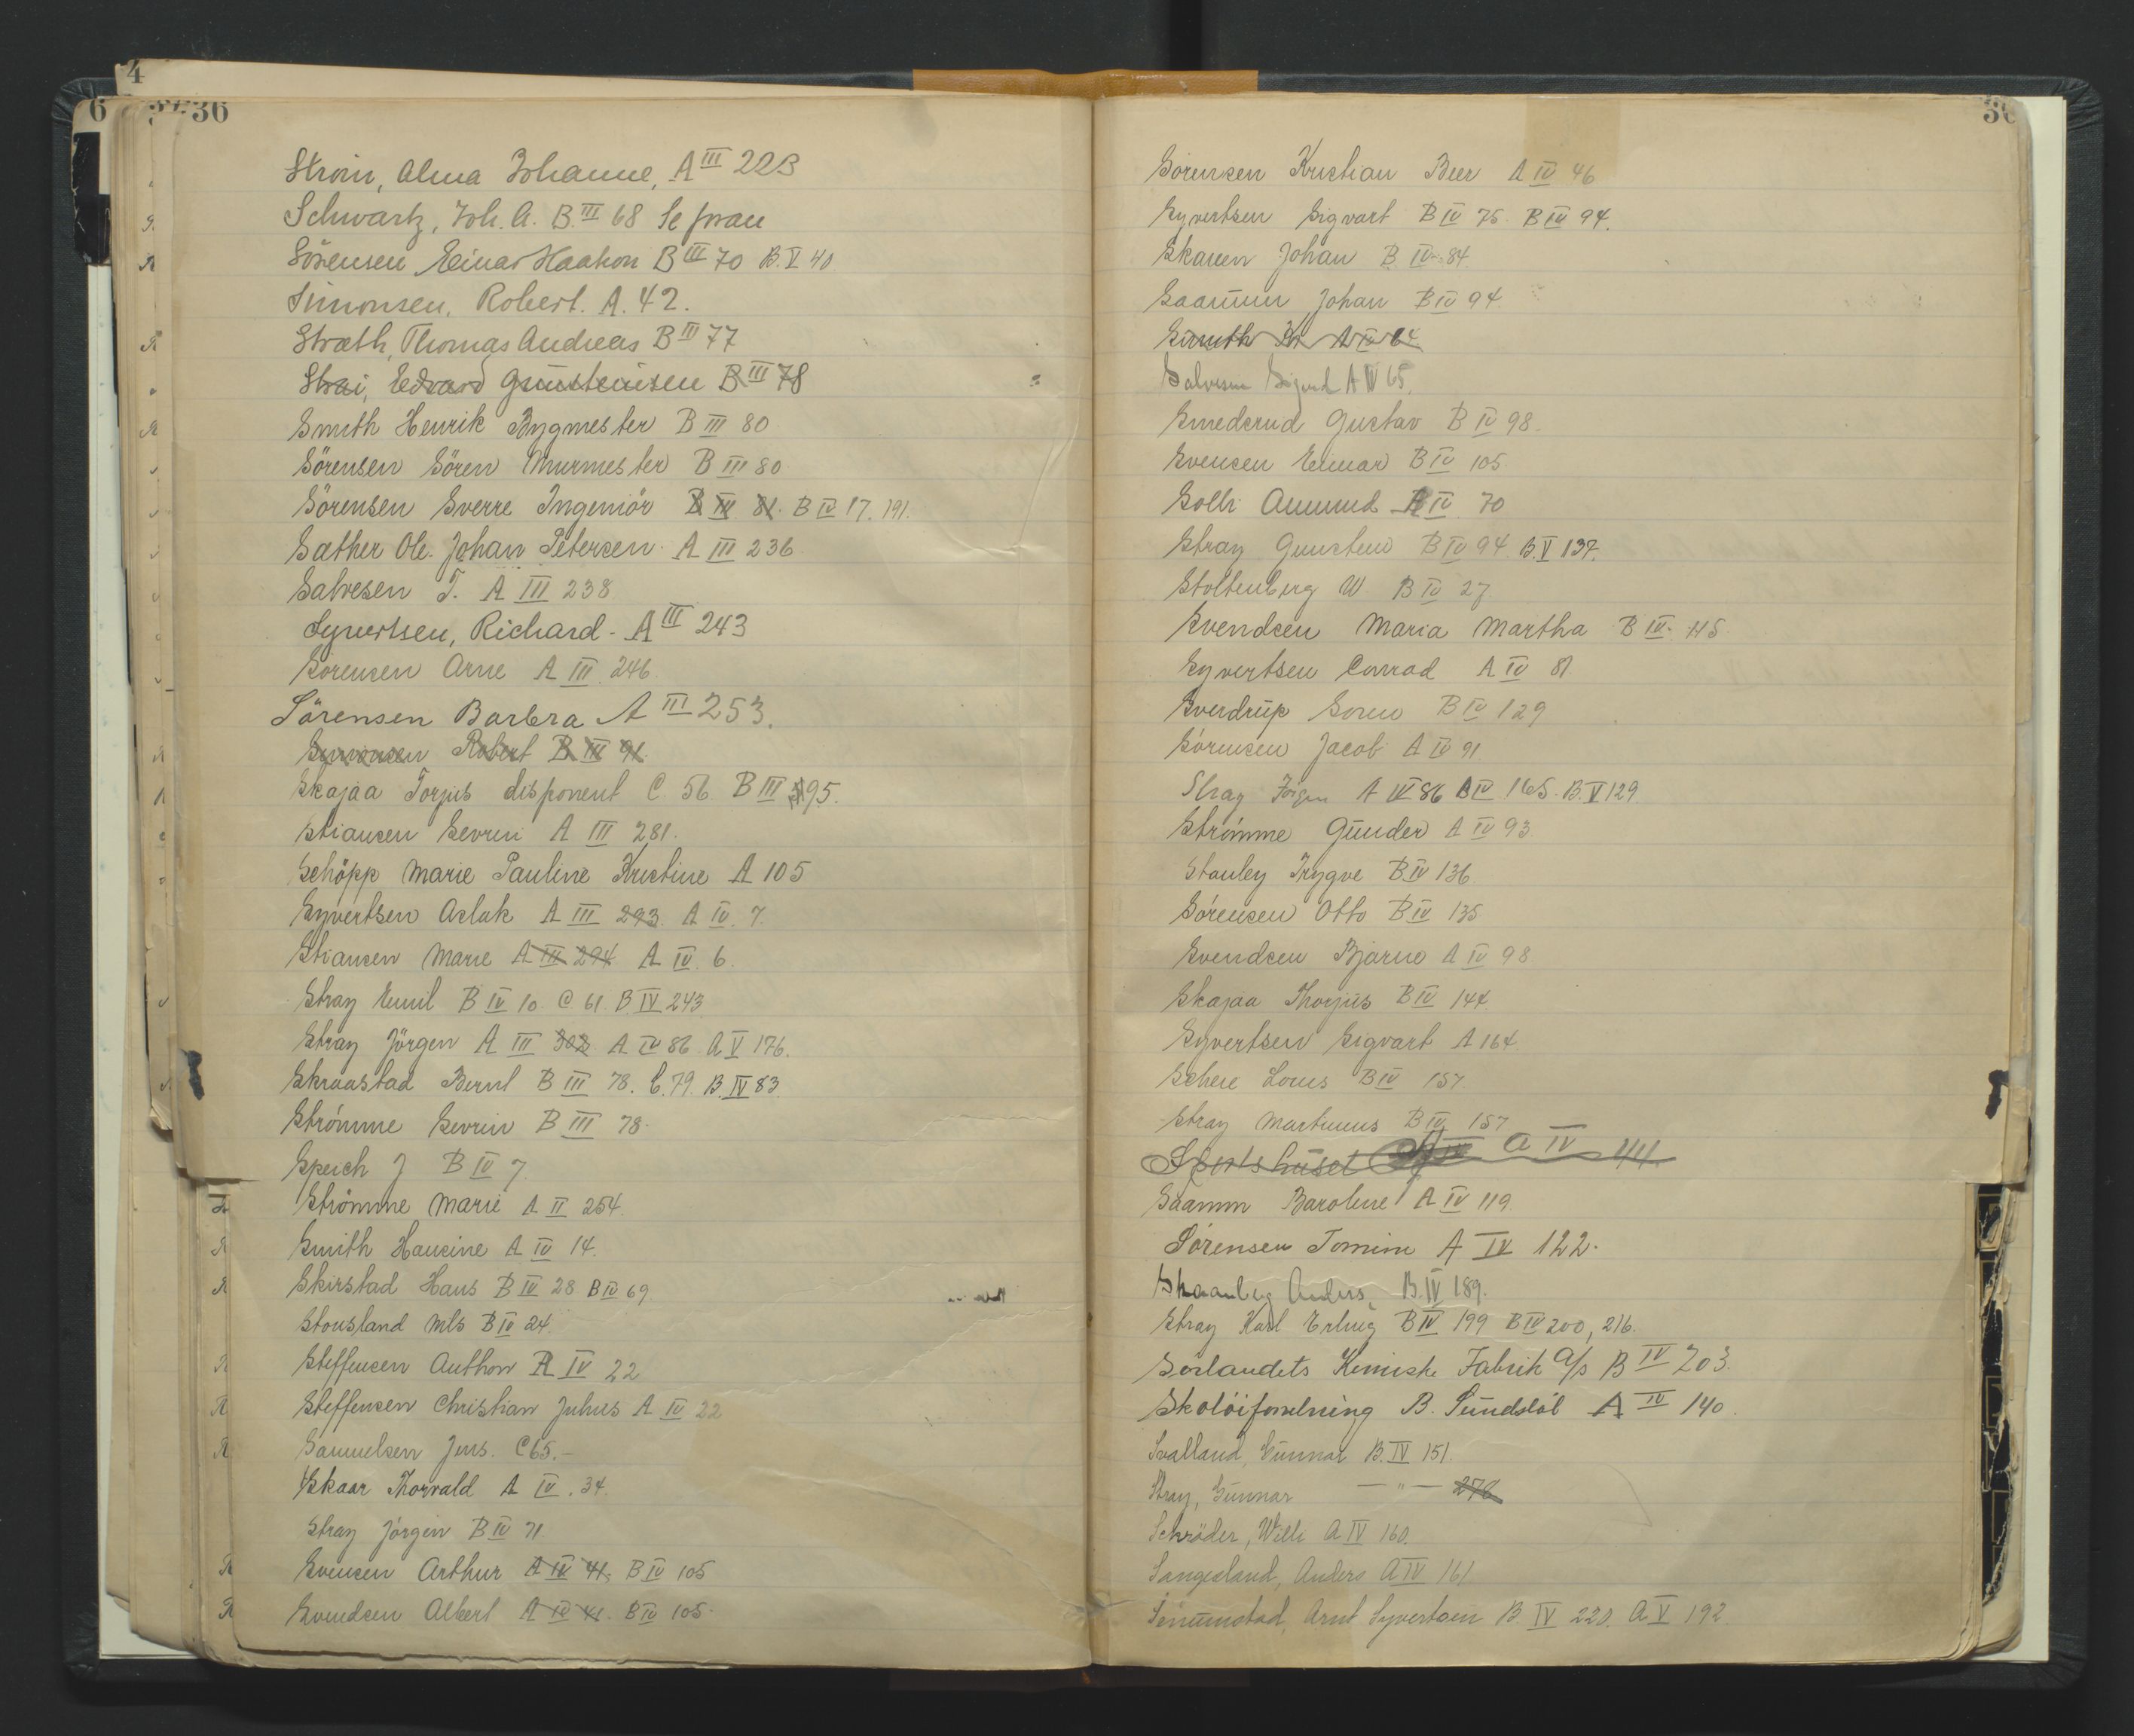 4
6 36
Strøm, Alma Johanne, A III 223
Schwartz, Joh. A. B. III 68 Se foran
Sörensen Einar Haakon B III 70 B. V 40
Simonsen, Robert. A. 42.
Stræth, Thomas Andreas B III 77
Strai, Edvard Gunsteinsen B III 78
Smith Henrik Bygmester B III 80
Sörensen Sören Murmester B III 80
Sörensen Sverre Ingeniör B III 81. B IV 17. 191.
Sæther Ole Johan Petersen. A III 236
Salvesen T. A III 238
Syvertsen, Richard - A III 243
Sörensen Arne A III 246.
Sörensen Barbra A III 253.
Simonsen Robert B III 91.
Skajaa Torjus disponent C. 56 B III 195.
Stiansen Sevrin A III 281.
Schöpp Marie Pauline Kristine A 105
Syvertsen Aslak A III 293. A IV. 7.
Stiansen Marie A III 294 A IV 6.
Stray Emil B IV 10. C 61. B IV 243
Stray Jörgen A III 302 A IV 86. A V 176.
Skraastad Bernt B III 78. C. 79. B. IV 83
Strömme Sevrin B III 78.
Speich J B IV 7.
Strömme Marie A II 254.
Smith Hansine A IV 14.
Skirstad Hans B IV 28 B IV 69.
Stousland Mls B IV 24.
Steffensen Anthon A IV 22
Steffensen Christian Julius A IV 22
Samuelsen Jens. C 65.-
Skaar Thorvald A IV. 34.
Stray Jörgen B IV 71.
Svensen Arthur A IV 41. B IV 105
Svendsen Albert A IV 41. B IV 105.
36
Sörensen Kristian Beer A IV 46
Syvertsen Sigvart B IV 75. B IV 94.
Skaren Johan B IV 84.
Saamun Johan B IV 94.
Smith Kr A IV 64
Salvesen Sigurd A IV 65.
Smedsrud Gustav B IV 98.
Svensen Einar B IV 105.
Solli Amund A IV 70
Stray Gunstein B IV 94 B. V 137.
Stoltenberg W B IV 27.
Svendsen Maria Martha B IV 115
Syvertsen Conrad A IV 81.
Sverdrup Sören B IV 129
Sörensen Jacob A IV 91
Stray Jörgen A IV 86 B IV 165. B. V 129
Strömme Gunder A IV 93
Stanley Trygve B IV 136.
Sörensen Otto B IV 135
Svendsen Bjarne A IV 98
Skajaa Thorjus B IV 144
Syvertsen Sigvart A 164.
Schee Louis B IV 157.
Stray Martinius B IV 157
Sportshuset A IV 44.
Saamm Baroline A IV 119.
Sörensen Tomine A IV 122.
Skaanberg Anders, B. IV 189.
Stray Karl Erling B IV 199 B IV 200, 216.
Sörlandets Kemiske Fabrik A/s B IV 203.
Skotöiforretning B. Sundslöl A IV 140.
Svalland, Gunnar B. IV 151.
Stray, Gunnar — " — 278
Schröder, Willi A IV 160.
Sangesland, Anders A IV 161
Senumstad, Arnt Syvertsen B. IV 220. A V 192.